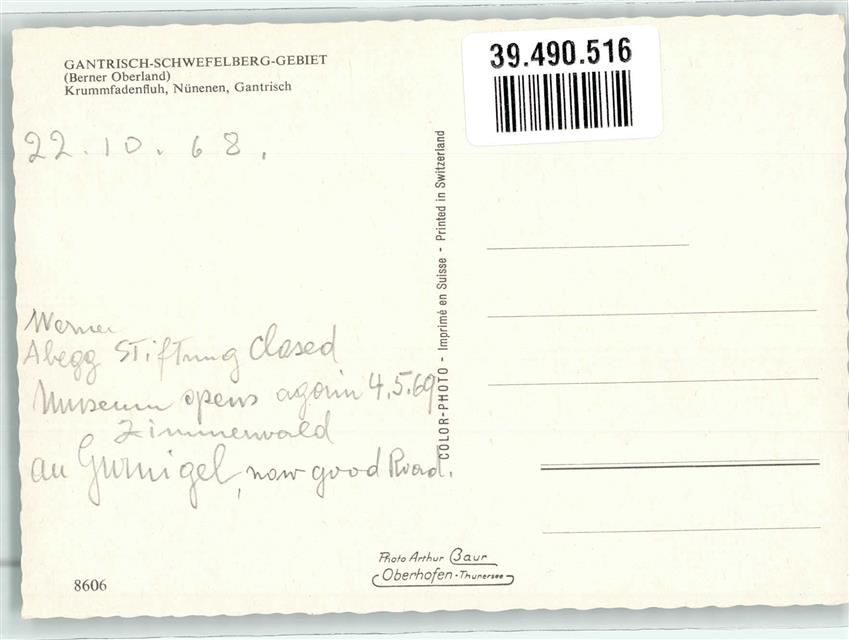 GANTRISCH-SCHWEFELBERG-GEBIET
(Berner Oberland)
Krummfadenfluh, Nünenen, Gantrisch
39.490.516
22.10.68.
COLOR-PHOTO - Imprimé en Suisse - Printed in Switzerland
Werner
Abegg Stiftung closed
Museum opens again 4.5.69
Zimmerwald
au Gurnigel, now good Road.
Photo Arthur Baur
Oberhofen - Thunersee
8606